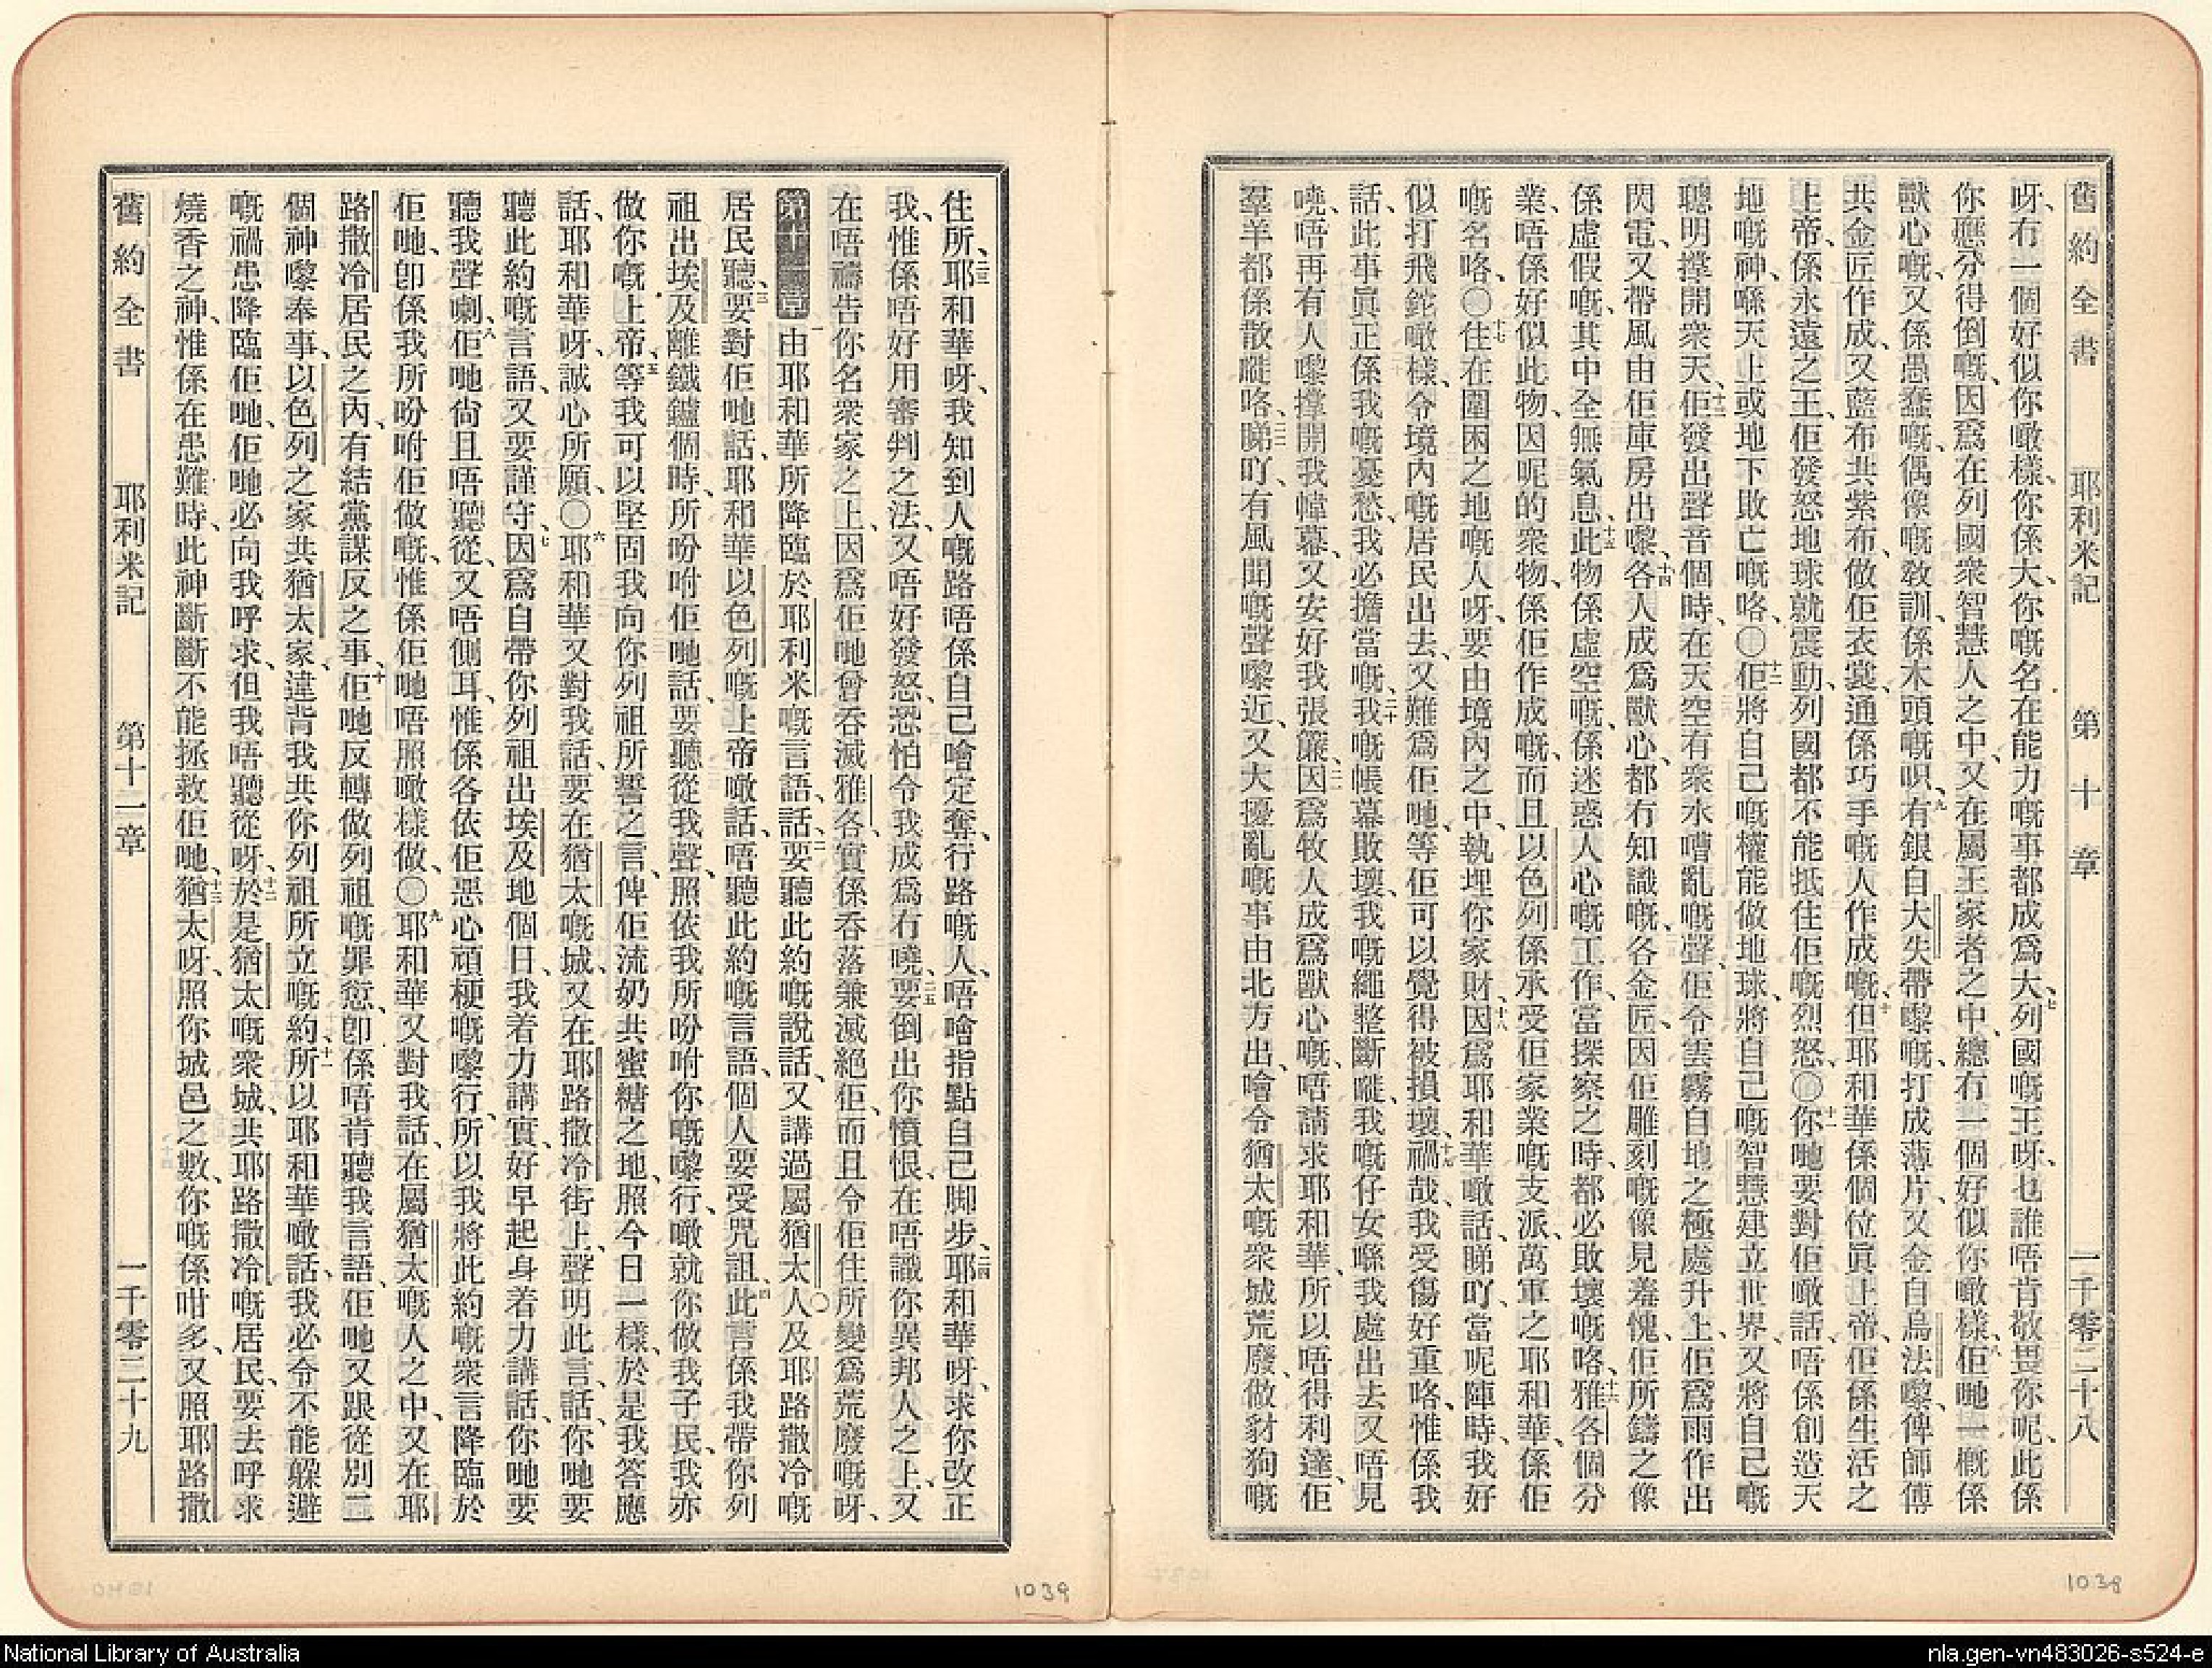 舊約全書 耶利米記 第十章 一千零三十八
呀、冇一個好似你噉樣、你係大、你嘅名在能力嘅事都成爲大、七列國嘅王呀、乜誰唔肯敬畏你呢、此係
你應分得倒嘅、因爲在列國衆智慧人之中、又在屬王家者之中、總冇一個好似你噉樣、八佢哋一槪係
獸心嘅、又係愚蠢嘅、偶像嘅敎訓、係木頭嘅呮、九有銀自大失帶嚟嘅、打成薄片、又金自烏法嚟、俾師傅
共金匠作成、又藍布共紫布、做佢衣裳、通係巧手嘅人作成嘅、十但耶和華係個位眞上帝、佢係生活之
上帝、係永遠之王、佢發怒地球就震動、列國都不能抵住佢嘅烈怒、〇十一你哋要對佢噉話、唔係創造天
地嘅神、喺天上或地下敗亡嘅咯、〇十二佢將自己嘅權能做地球、將自己嘅智慧建立世界、又將自己嘅
聰明撑開衆天、十三佢發出聲音個時、在天空有衆水嘈亂嘅聲、佢令雲霧自地之極處升上、佢爲雨作出
閃電、又帶風由佢庫房出嚟、十四各人成爲獸心、都冇知識嘅、各金匠、因佢雕刻嘅像見羞愧、佢所鑄之像
係虛假嘅、其中全無氣息、十五此物係虛空嘅、係迷惑人心嘅工作、當探察之時、都必敗壞嘅咯、十六雅各個分
業、唔係好似此物、因呢的衆物、係佢作成嘅、而且以色列係承受佢家業嘅支派、萬軍之耶和華、係佢
嘅名咯、〇十七住在圍困之地嘅人呀、要由境內之中、執埋你家財、十八因爲耶和華噉話、睇吖、當呢陣時、我好
似打飛鉈噉樣、令境內嘅居民出去、又難爲佢哋、等佢可以覺得被損壞、十九禍哉、我受傷好重咯、惟係我
話、此事眞正係我嘅憂愁、我必擔當嘅、二十我嘅帳幕敗壞、我嘅繩整斷嘥、我嘅仔女喺我處出去、又唔見
嘵、唔再有人嚟撑開我幃幕、又安好我張簾、二一因爲牧人成爲獸心嘅、唔請求耶和華、所以唔得利達、佢
羣羊都係散嘥咯、二二睇吖、有風聞嘅聲嚟近、又大擾亂嘅事由北方出、噲令猶太嘅衆城荒廢、做豺狗嘅
住所、二三耶和華呀、我知到人嘅路唔係自己噲定奪、行路嘅人、唔噲指點自己脚步、二四耶和華呀、求你改正
我、惟係唔好用審判之法、又唔好發怒、恐怕令我成爲冇嘵、二五要倒出你憤恨、在唔識你異邦人之上、又
在唔禱告你名衆家之上、因爲佢哋曾吞滅雅各、實係吞落兼滅絕佢、而且令佢住所變爲荒廢嘅呀、
第十一章 一由耶和華所降臨於耶利米嘅言語、話、二要聽此約嘅說話、又講過屬猶太人及耶路撒冷嘅
居民聽、三要對佢哋話、耶和華以色列嘅上帝噉話、唔聽此約嘅言語、個人要受咒詛、四此言係我帶你列
祖出埃及離鐵鑪個時、所吩咐佢哋話、要聽從我聲、照依我所吩咐你嘅嚟行、噉就你做我子民、我亦
做你嘅上帝、五等我可以堅固我向你列祖所誓之言、俾佢流奶共蜜糖之地、照今日一樣、於是我答應
話、耶和華呀、誠心所願、〇六耶和華又對我話、要在猶太嘅城、又在耶路撒冷街上、聲明此言、話、你哋要
聽此約嘅言語、又要謹守、七因爲自帶你列祖出埃及地個日、我着力講實、好早起身着力講話、你哋要
聽我聲喇、八佢哋尙且唔聽從、又唔側耳、惟係各依佢惡心頑梗嘅嚟行、所以我將此約嘅衆言降臨於
佢哋、卽係我所吩咐佢做嘅、惟係佢哋唔照噉樣做、〇九耶和華又對我話、在屬猶太嘅人之中、又在耶
路撒冷居民之內、有結黨謀反之事、十佢哋反轉做列祖嘅罪愆、卽係唔肯聽我言語、佢哋又跟從別二
個神嚟奉事、以色列之家共猶太家、違背我共你列祖所立嘅約、十一所以耶和華噉話、我必令不能躱避
嘅禍患降臨佢哋、佢哋必向我呼求、但我唔聽從呀、十二於是猶太嘅衆城、共耶路撒冷嘅居民、要去呼求
燒香之神、惟係在患難時、此神斷斷不能拯救佢哋、十三猶太呀、照你城邑之數、你嘅係咁多、又照耶路撒
舊約全書 耶利米記 第十一章 一千零三十九
1039
1038
National Library of Australia
nla.gen-vn483026-s524-e